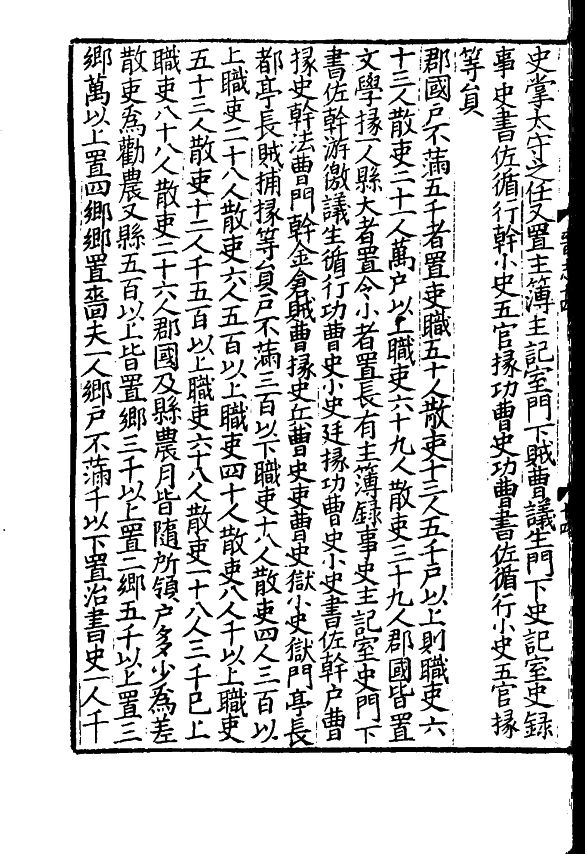 史掌太守之任又置主簿主記室門下賊曹議生門下史記室史錄
事史書佐循行幹小史五官掾功曹史功曹書佐循行小史五官掾
等員
郡國戶不滿五千者置吏職五十人散吏十三人五千戶以上則職吏六
十三人散吏二十一人萬户以上職吏六十九人散吏三十九人郡國皆置
文學掾一人縣大者置令小者置長有主簿錄事史主記室史門下
書佐幹游徼議生循行功曹史小史廷掾功曹史小史書佐幹户曹
掾史幹法曹門幹金倉賊曹掾史兵曹史吏曹史獄小史獄門亭長
都亭長賊捕掾等員戶不滿三百以下職吏十八人散吏四人三百以
上職吏二十八人散吏六人五百以上職吏四十人散吏八人千以上職吏
五十三人散吏十二人千五百以上職吏六十八人散吏一十八人三千已上
職吏八十八人散吏二十六人郡國及縣農月皆隨所領户多少為差
散吏為勸農又縣五百以上皆置鄉三千以上置二鄉五千以上置三
鄉萬以上置四鄉鄉置嗇夫一人鄉戶不滿千以下置治書史一人千